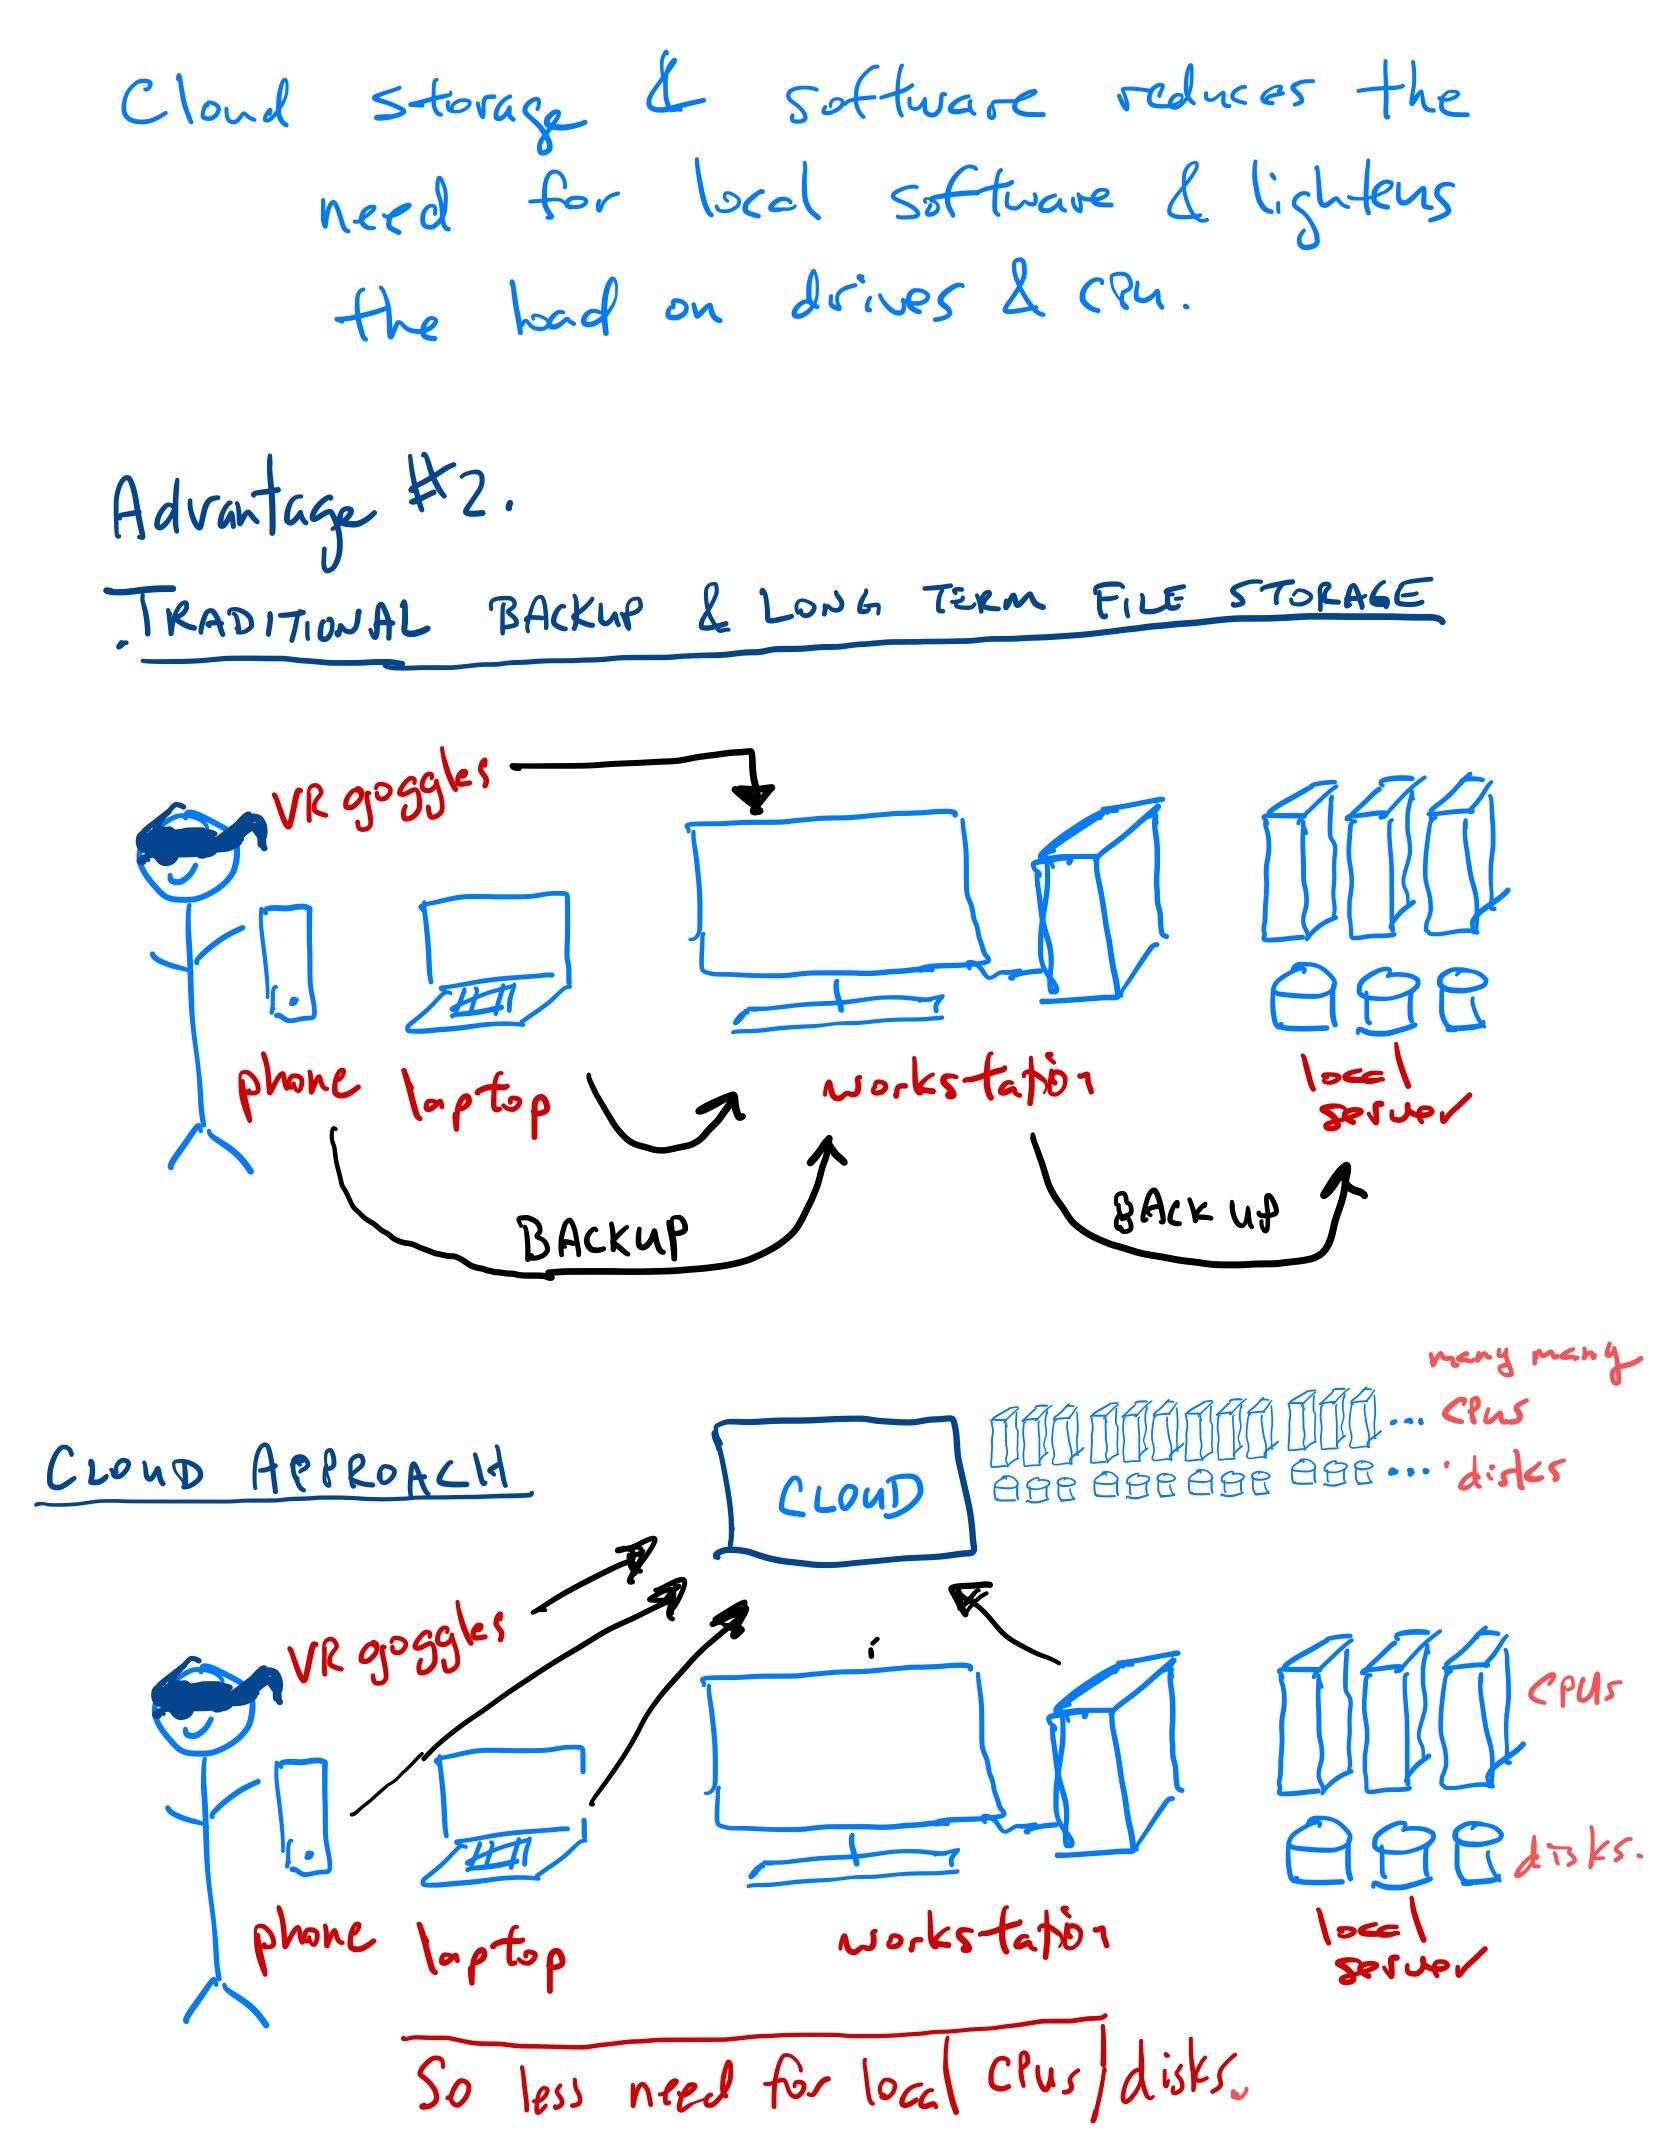 Cloud storage & software reduces the
need for local software & lightens
the load on drives & CPU.
Advantage #2.
TRADITIONAL BACKUP & LONG TERM FILE STORAGE
VR goggles
phone
laptop
workstation
local
server
BACKUP
BACKUP
many many
CPUs
disks
CLOUD APPROACH
CLOUD
VR goggles
CPUs
disks.
phone
laptop
workstation
local
server
So less need for local CPUs/disks.